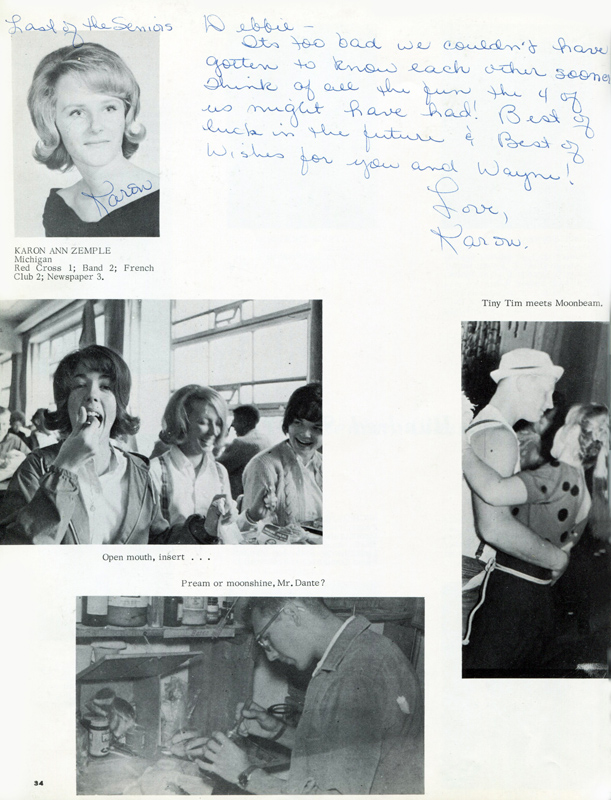 Last of the Seniors
Debbie -
Its too bad we couldn't have
gotten to know each other sooner
Think of all the fun the 4 of
us might have had! Best of
luck in the future & Best of
Wishes for you and Wayne!
Love,
Karon.
Karon
KARON ANN ZEMPLE
Michigan
Red Cross 1; Band 2; French
Club 2; Newspaper 3.
Tiny Tim meets Moonbeam.
Open mouth, insert . . .
Pream or moonshine, Mr. Dante?
34